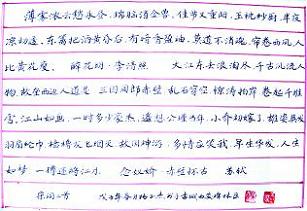 薄雾浓云愁永昼 瑞脑消金兽 佳节又重阳 玉枕纱厨 半夜
凉初透 东篱把酒黄昏后 有暗香盈袖 莫道不消魂 帘卷西风 人
比黄花瘦 醉花阴 李清照 大江东去 浪淘尽 千古风流人
物 故垒西边 人道是 三国周郎赤壁 乱石穿空 惊涛拍岸 卷起千堆
雪 江山如画 一时多少豪杰 遥想公瑾当年 小乔初嫁了 雄姿英发
羽扇纶巾 樯橹灰飞烟灭 故国神游 多情应笑我 早生华发 人生
如梦 一樽还酹江月 念奴娇 赤壁怀古 苏轼